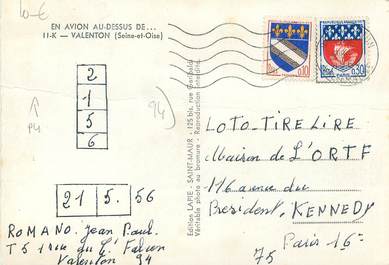 10-E
EN AVION AU-DESSUS DE...
11-K — VALENTON (Seine-et-Oise)
2
1
5
6
94
94
21 5. 56
ROMANO. Jean Paul.
T5 1 rue du
Valenton 94
Edition LAPIE - SAINT-MAUR - 125 bis, rue Garibaldi
Véritable photo au bromure - Reproduction interdite
0,10
0,30
PARIS
LOTO-TIRE LIRE
Maison de L'ORTF
116 avenue du
President, KENNEDY
75 Paris 16e